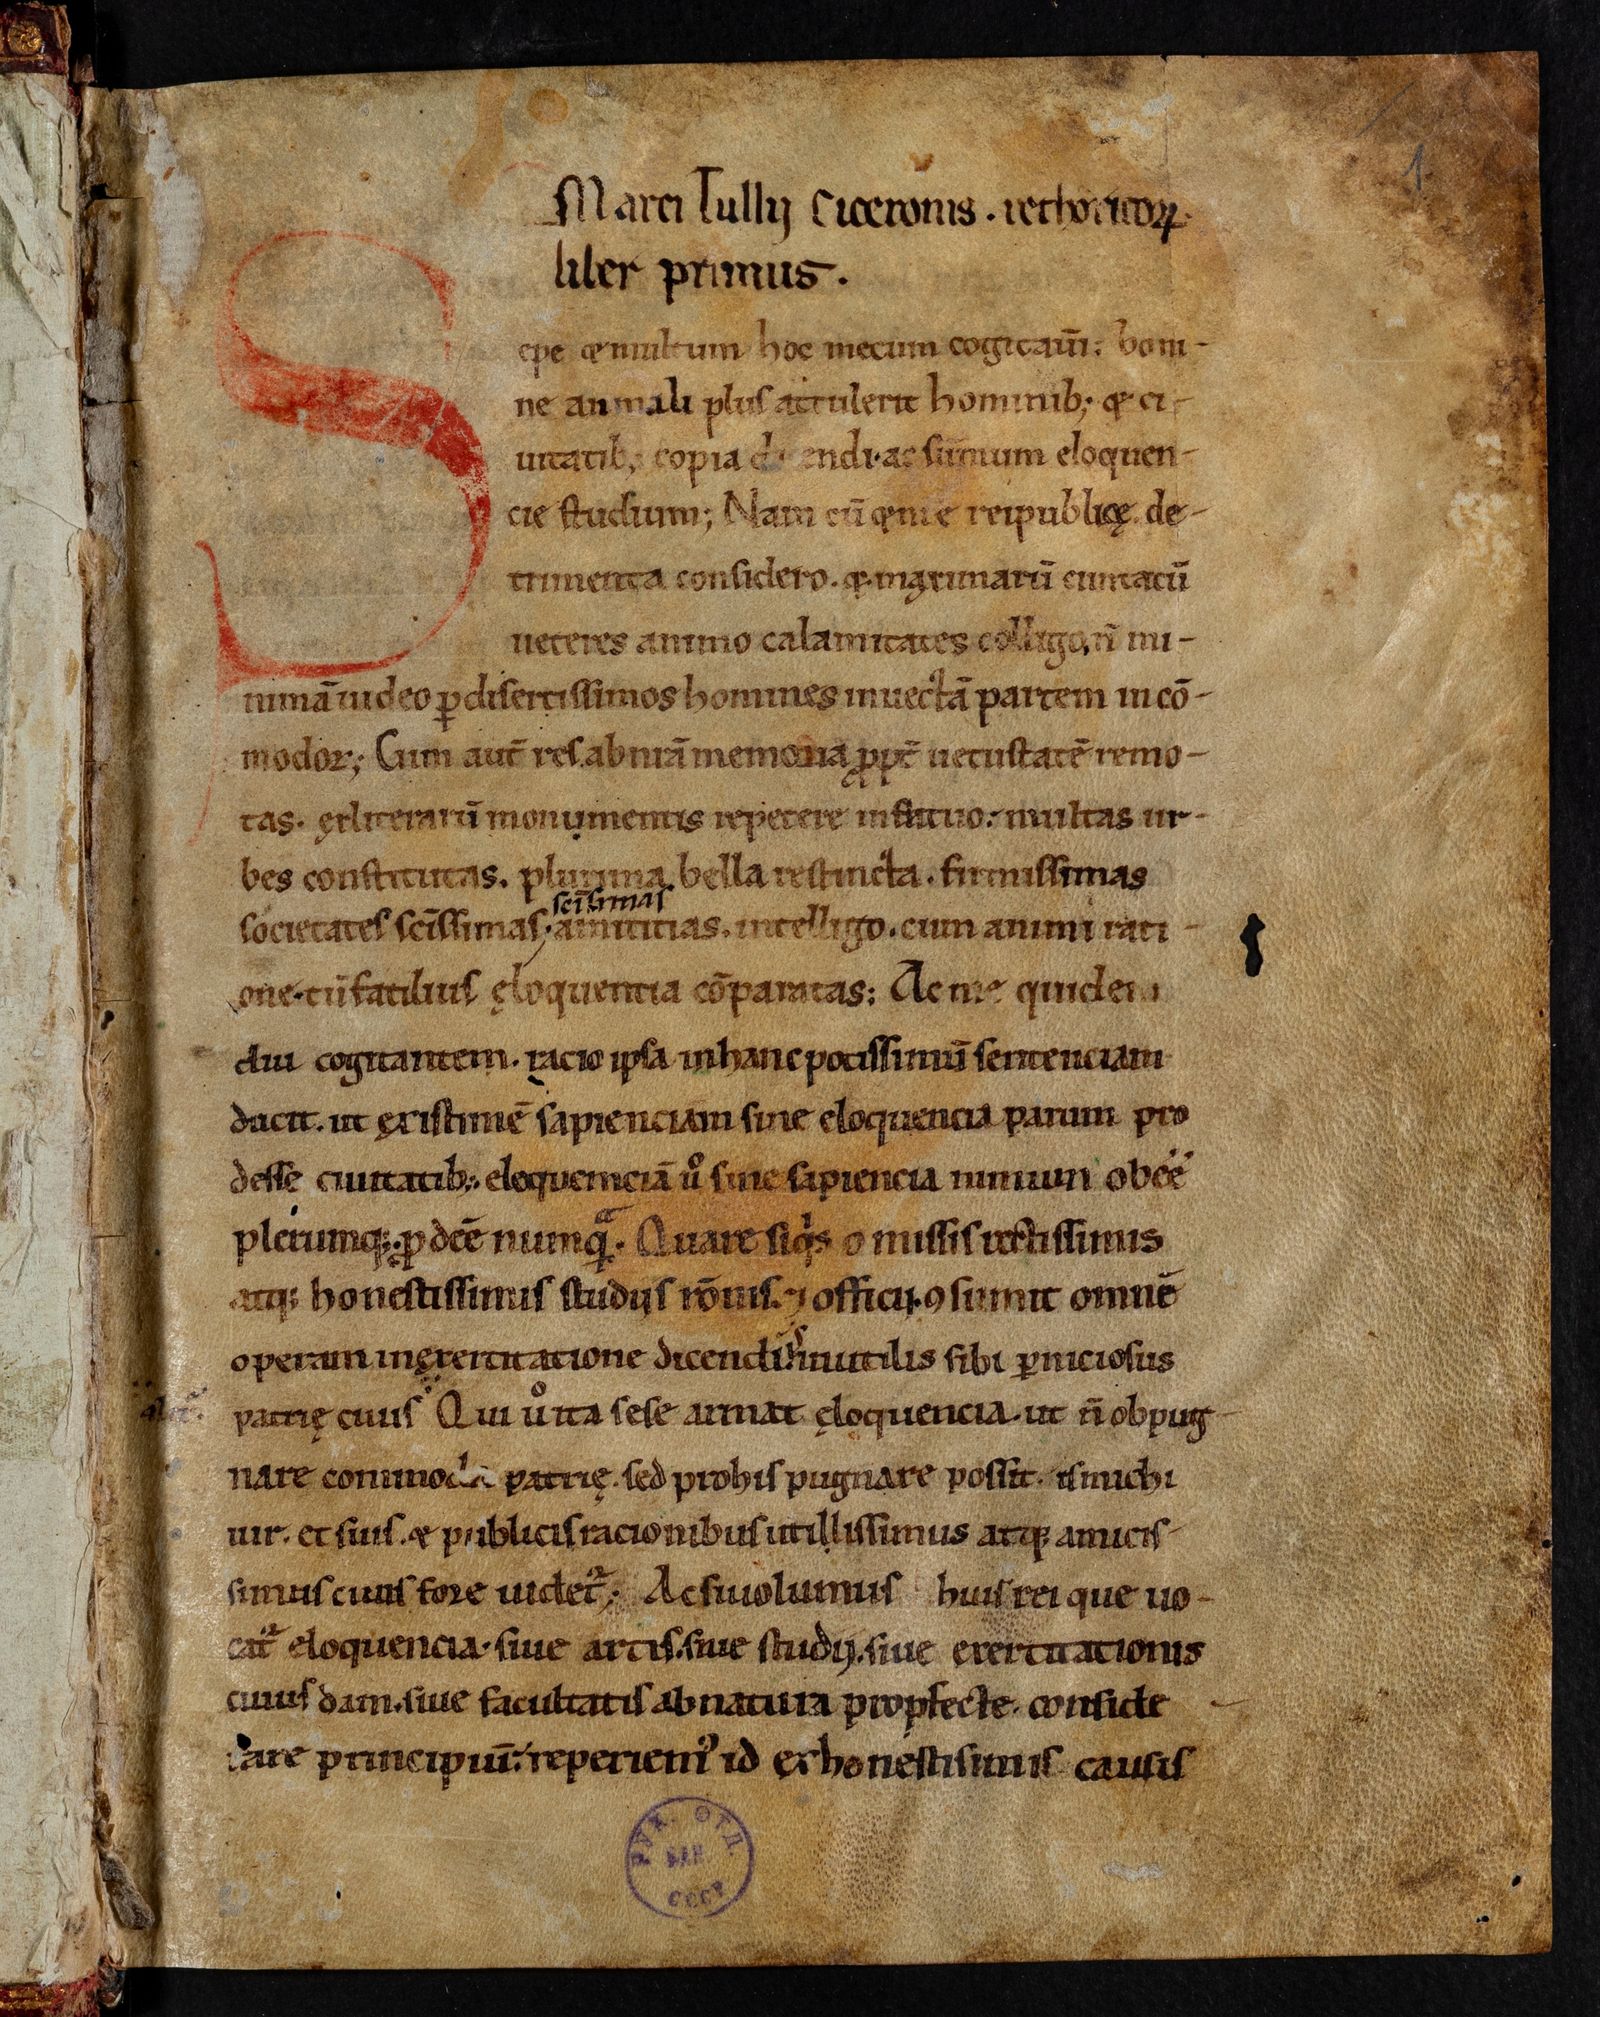 1
Marci Tullij Ciceronis . rethoricoꝝ
liber primus .
S epe & multum hoc mecum cogitaui : boni -
ne an mali plus attulerit hominib; & ci -
uitatib; copia d endi · ac sūmum eloquen -
cie studium ; Nam cū & nr̄e reipublicę de -
trimenta considero . & maximarū ciuitatū
ueteres animo calamitates colligo , n̄ mi -
nimā uideo ꝑ disertissimos homines inuectā partem in cō -
modoꝝ ; Cum aut̄ res ab nr̄ā memoria ꝓpt̄ uetustatē remo -
tas . ex literarū monumentis repetere instituo : multas ur -
bes constitutas . plurima bella restincta . firmissimas
scīssimas
societates scīssimas ; amicitias . intelligo . cum animi rati -
one · tū facilius eloquentia cōparatas : Ac me quidem
diu cogitantem . racio ipsa in hanc potissimū sentenciam
ducit . ut existimē sapienciam sine eloquencia parum pro
desse ciuitatib; . eloquenciā ů sine sapiencia nimium obeē
plerumq; . ꝓdeē numqᷓ . Quare siqͥs omissis rectissimis
atq; honestissimis studijs rōnis . ⁊ officij . ꝯsumit omnē
operam in exercitatione dicendi : inutilis sibi ꝑniciosus
patrię ciuis Qui ů ita sese armat eloquencia . ut n̄ obpug -
nare commoda patrię . sed pro his pugnare possit . is michi
uir . et suis . & publicis racionibus utillissimus atq; amicis -
simus ciuis fore uidet᷑ ; Ac si uolumus huius rei que uo -
cat᷑ eloquencia · siue artis . siue studij . siue exercitationis
cuius dam . siue facultatis ab natura propfecte . conside
rare principiū : reperiem᷒ id ex honestisimis causis
РУК. ОТД.
БАН
СССР